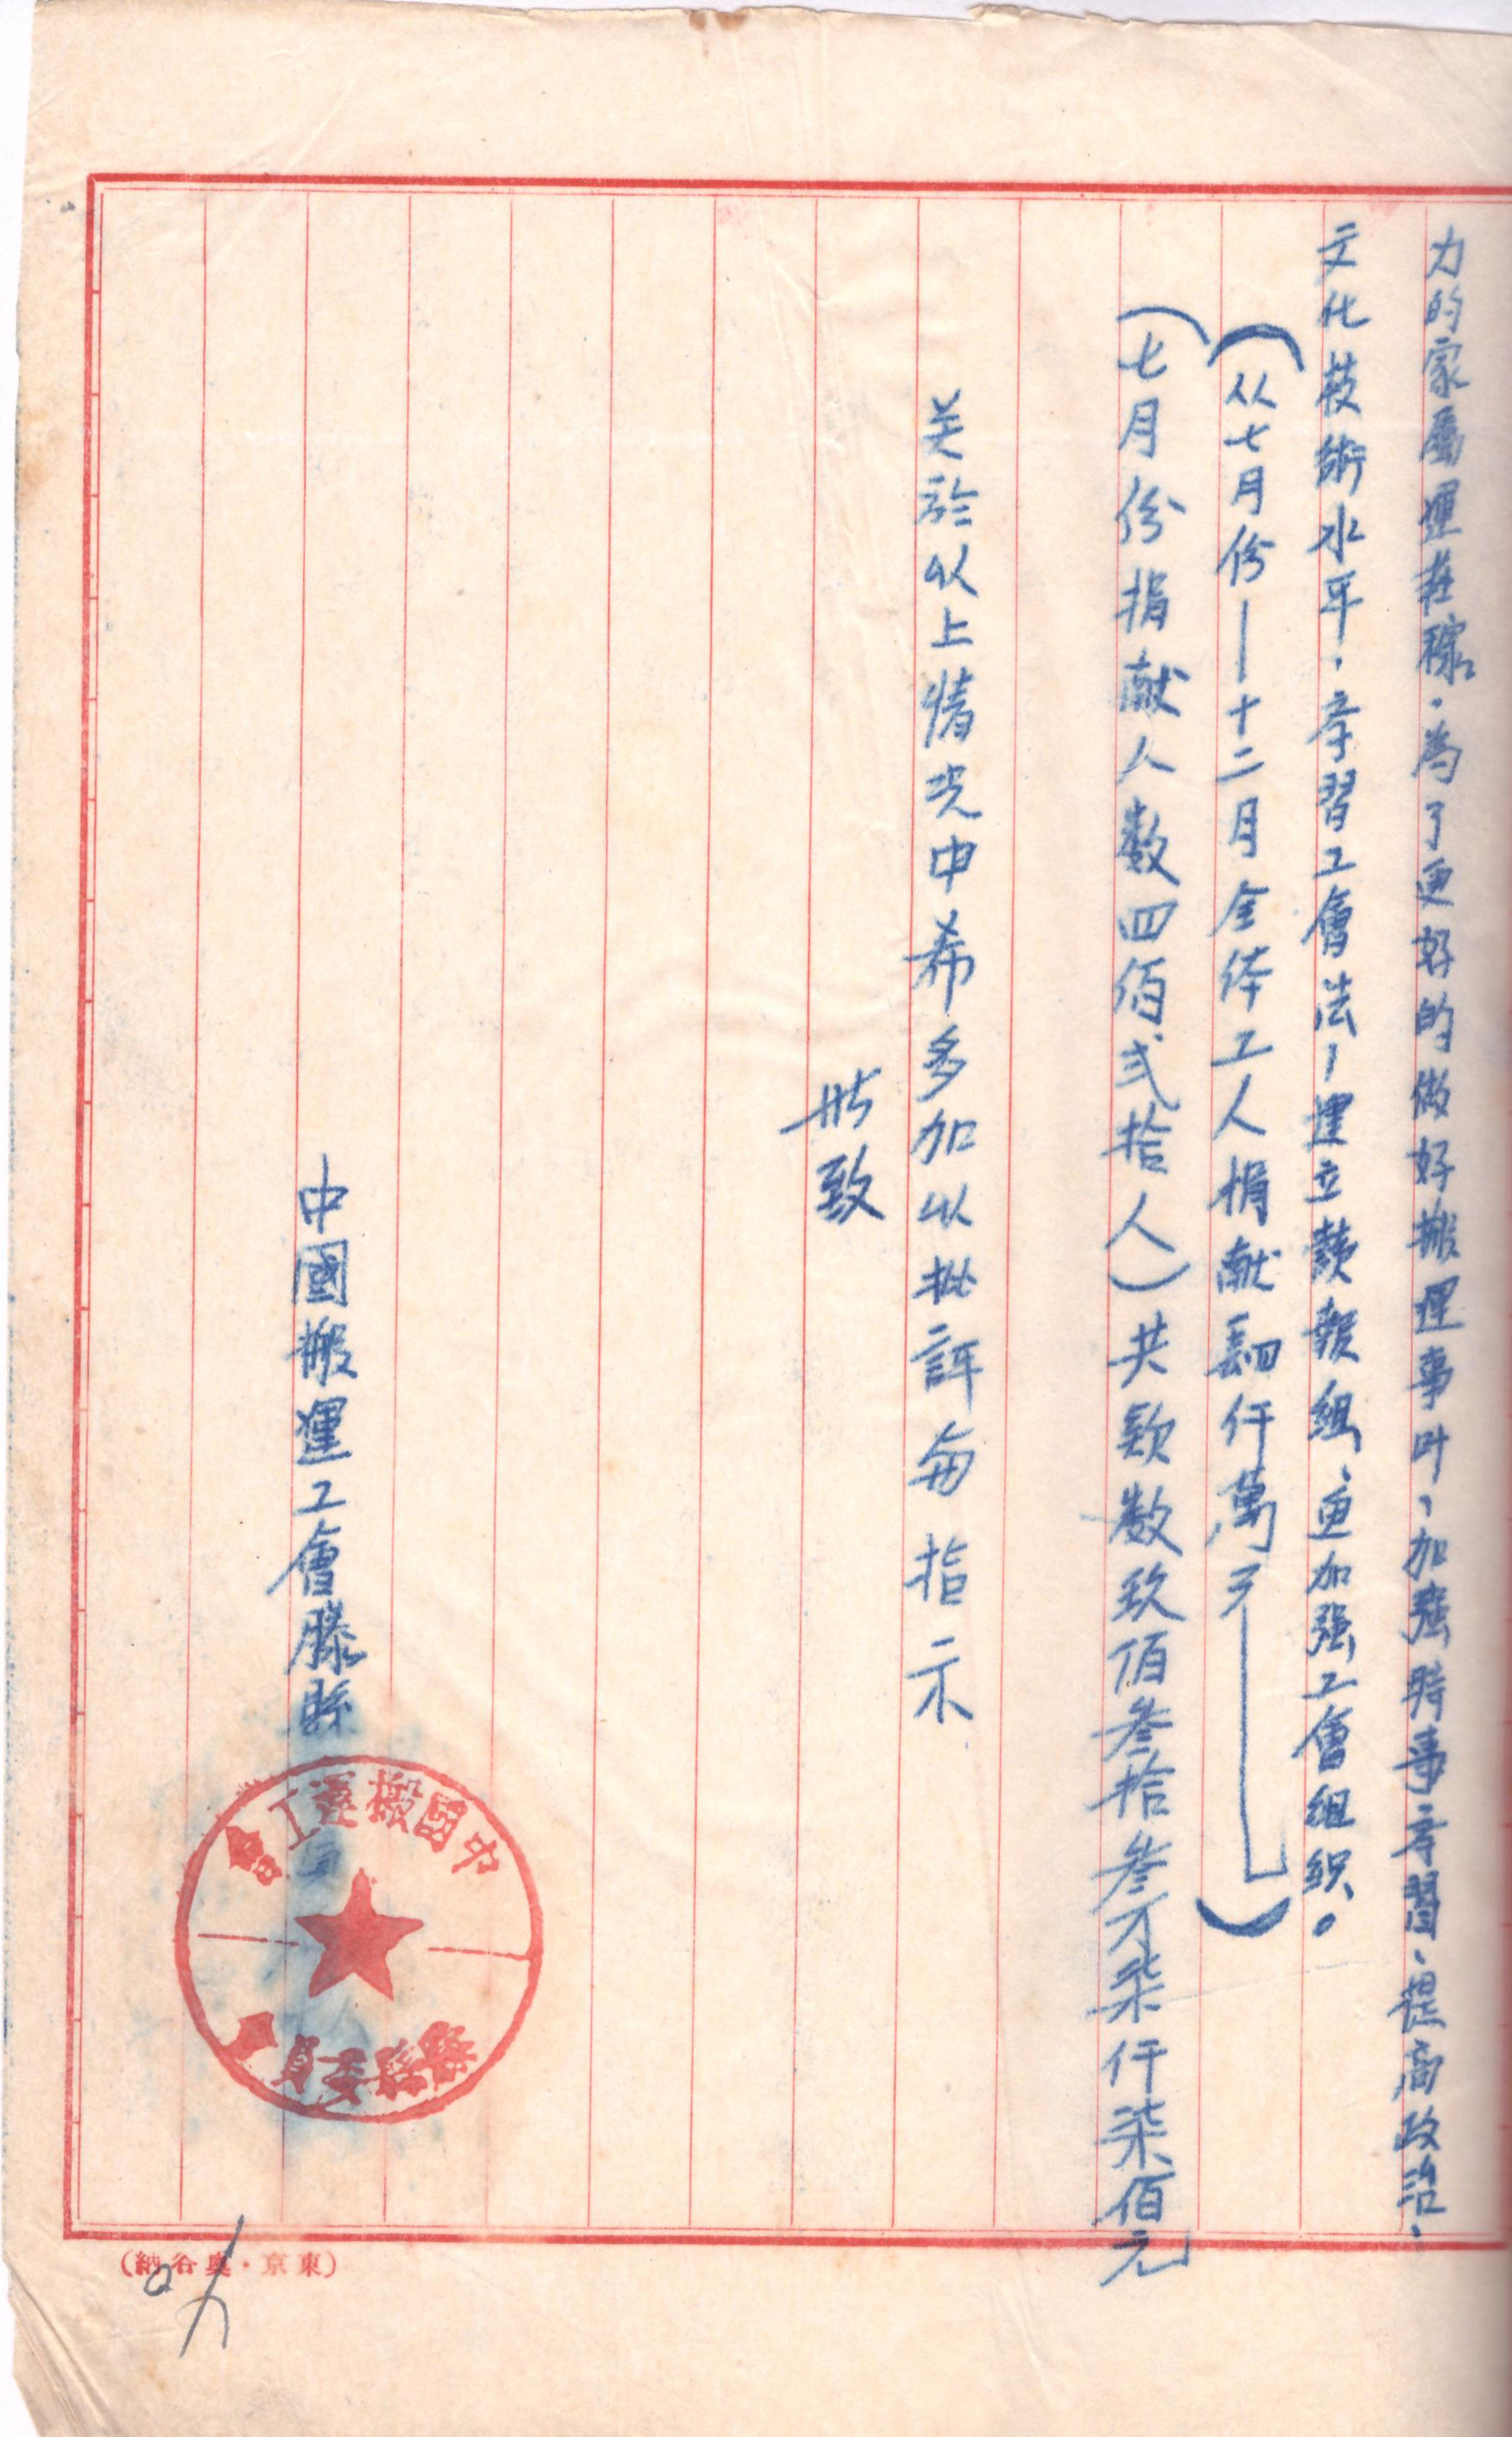 力的家屬運莊稼．為了更好的做好搬運事叶、加强時事李習．提高政治、
文化技術水平、李習工會法－建立讀報組、更加强工會组织。
（从七月份——十二月全体工人捐献仟萬元——）
（七月份捐献人数四佰弍拾人）共款数玖佰叁拾叁万柒仟柒佰元
关於以上情况中希多加以批評每指示
此致
中國搬運工會滕縣
中國搬運工會
滕縣委員會
（東京・奥谷納）